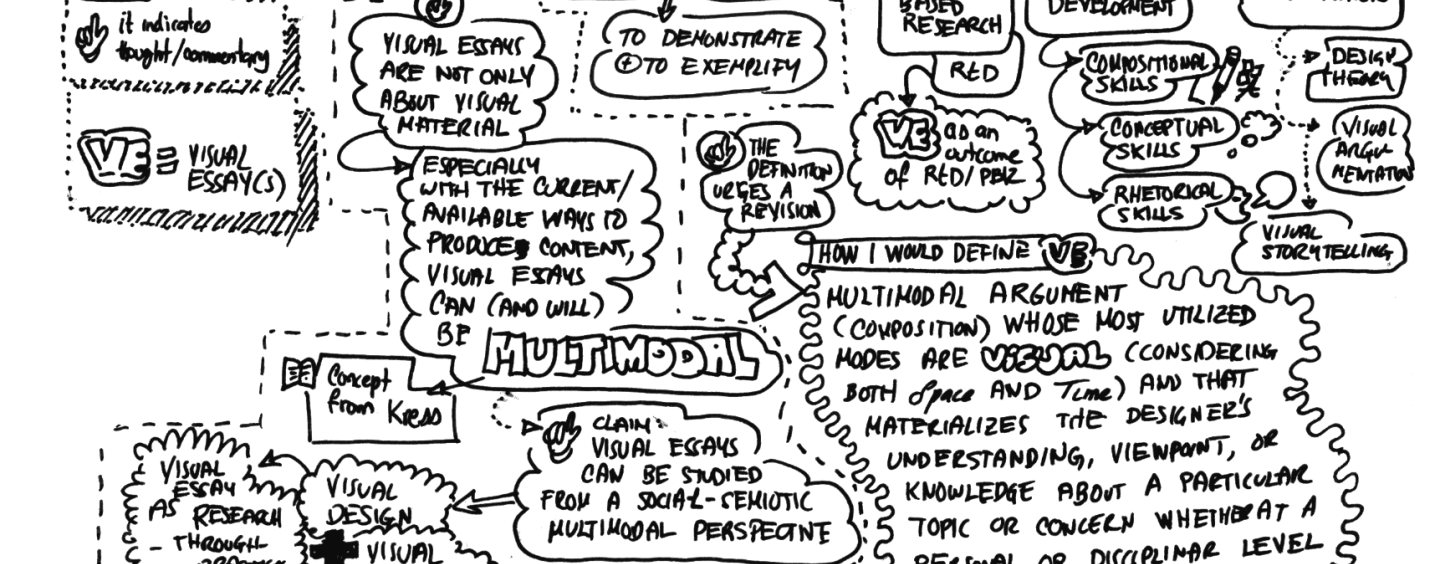 it indicates
thought/commentary
VE = VISUAL
ESSAY(S)
VISUAL ESSAYS
ARE NOT ONLY
ABOUT VISUAL
MATERIAL
ESPECIALLY
WITH THE CURRENT/
AVAILABLE WAYS TO
PRODUCE CONTENT,
VISUAL ESSAYS
CAN (AND WILL)
BE MULTIMODAL
Concept
from Kress
TO DEMONSTRATE
+ TO EXEMPLIFY
CLAIM:
VISUAL ESSAYS
CAN BE STUDIED
FROM A SOCIAL-SEMIOTIC
MULTIMODAL PERSPECTIVE
VISUAL
DESIGN
+ VISUAL
VISUAL
ESSAY
AS RESEARCH
- THROUGH
BASED
RESEARCH
RtD
VE as an
outcome
of RtD/PBR
THE
DEFINITION
URGES A
REVISION
DEVELOPMENT
COMPOSITIONAL
SKILLS
CONCEPTUAL
SKILLS
RHETORICAL
SKILLS
DESIGN
THEORY
VISUAL
ARGU
MENTATION
VISUAL
STORYTELLING
HOW I WOULD DEFINE VE
MULTIMODAL ARGUMENT
(COMPOSITION) WHOSE MOST UTILIZED
MODES ARE VISUAL (CONSIDERING
BOTH Space AND Time) AND THAT
MATERIALIZES THE DESIGNER'S
UNDERSTANDING, VIEWPOINT, OR
KNOWLEDGE ABOUT A PARTICULAR
TOPIC OR CONCERN WHETHER AT A
PERSONAL OR DISCIPLINAR LEVEL